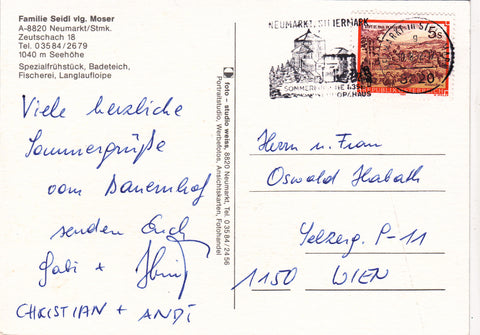 Familie Seidl vlg. Moser
A-8820 Neumarkt/Stmk.
Zeutschach 18
Tel. 0 35 84 / 2679
1040 m Seehöhe
Spezialfrühstück, Badeteich,
Fischerei, Langlaufloipe
Viele herzliche
Sommergrüße
vom Bauernhof
senden Euch
Gabi +
CHRISTIAN + ANDI
foto - studio weiss, 8820 Neumarkt, Tel. 0 35 84/2456
Portraitstudio, Werbefotos, Ansichtskarten, Fotohandel
NEUMARKT, STEIERMARK
SOMMER
HAUS
5s
8820
Herrn u. Frau
Oswald
P-11
1150 WIEN